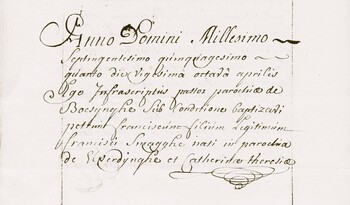 Anno Domini Millesimo
Septingentesimo quinquagesimo
quarto die vigesima octava aprilis
Ego Infrascriptus pastor parochiæ de
Boesynghe sub Conditione baptizavi
Franciscum filium Legitimum
Francisci nati in parochia
de Elverdynghe et Catherinæ theresiæ